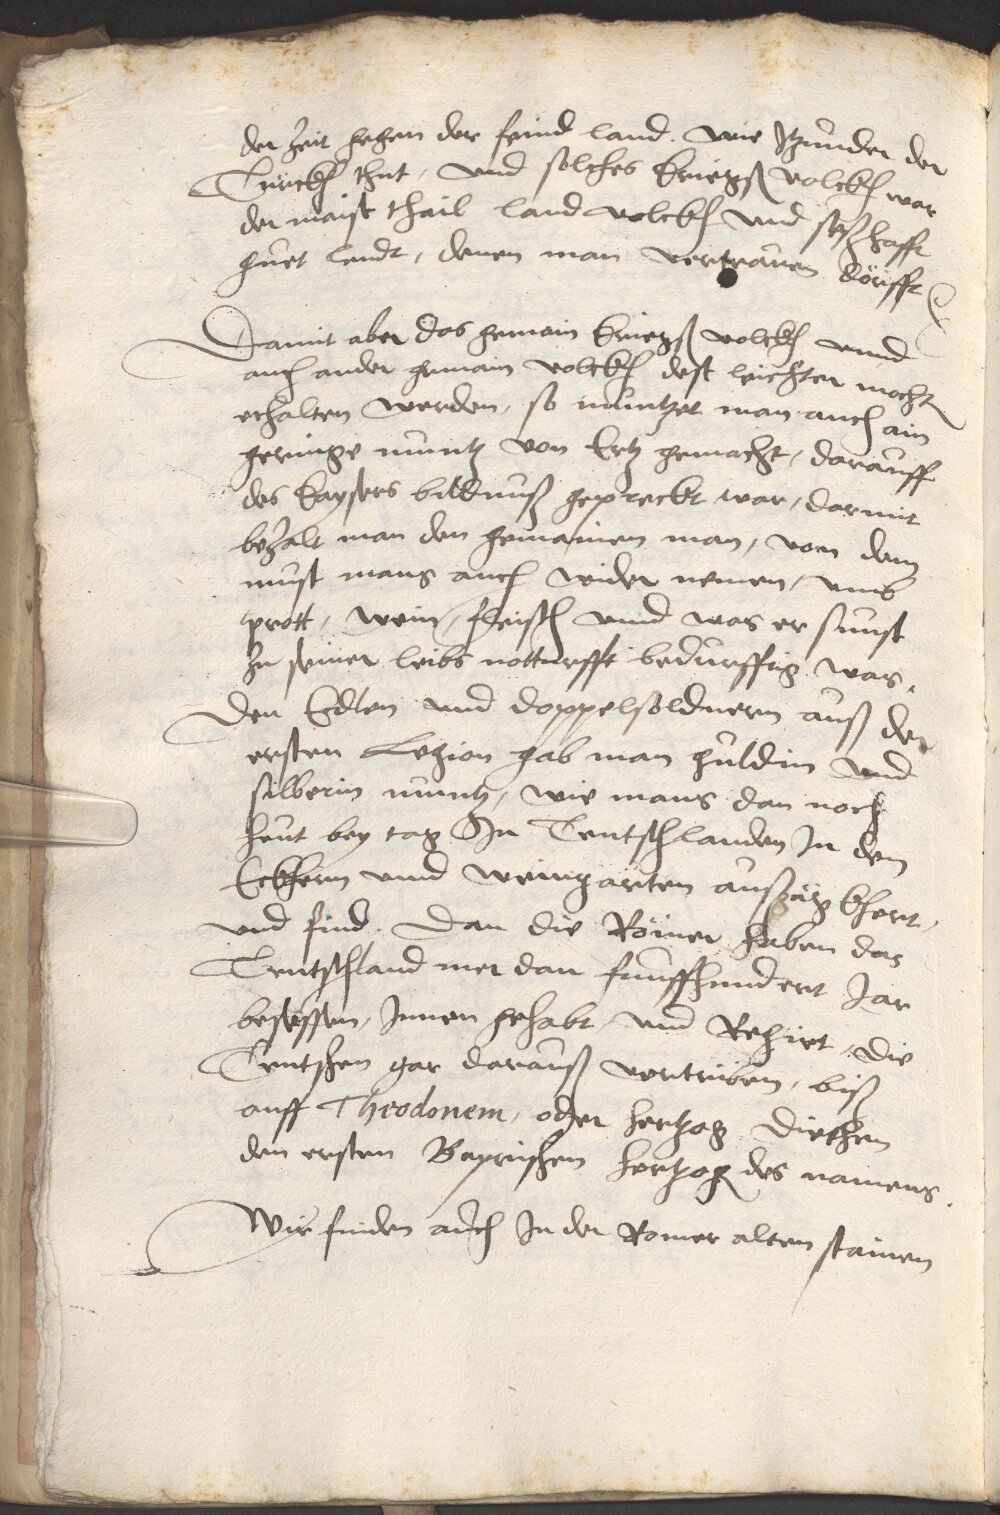 der Zeit gegen der feind land. wie Jtzunder der
Türckh thut, und solches kriegß volckh war
der maist thail land volckh und seßhafft
guet leudt, denen man vertrauen dörfft
Damit aber das gemain kriegß volckh unnd
auch ander gemain volckh dest leichter mocht
erhalten werden, so muntzet man auch ain
geringe muntz von Ertz gemacht, darauff
des kaysers bildnuß gepreckt war, darmit
bezalt man den gemainen man, von dem
must mans auch wider nemen, umb
prott, wein, fleisch unnd was er sunst
zu seiner leibs notturfft bedurfftig was.
Den Edlen und doppelsoldnern auß der
ersten Legion gab man guldin und
silberin muntz, wie mans dan noch
heut bey tag In Teutschlanden In den
Eckhern unnd weingarten außpärg khert,
und find. Dan die Römer haben das
Teutschland mer dan funffhundert Jar
besessen, Innen gehabt, und Regirt, die
Teutschen gar darauß vertriben, biß
auff Theodonem, oder hertzog Diethen
den ersten Bayrischen hertzog des namens.
Wir finden auch In der Romer alten stainen